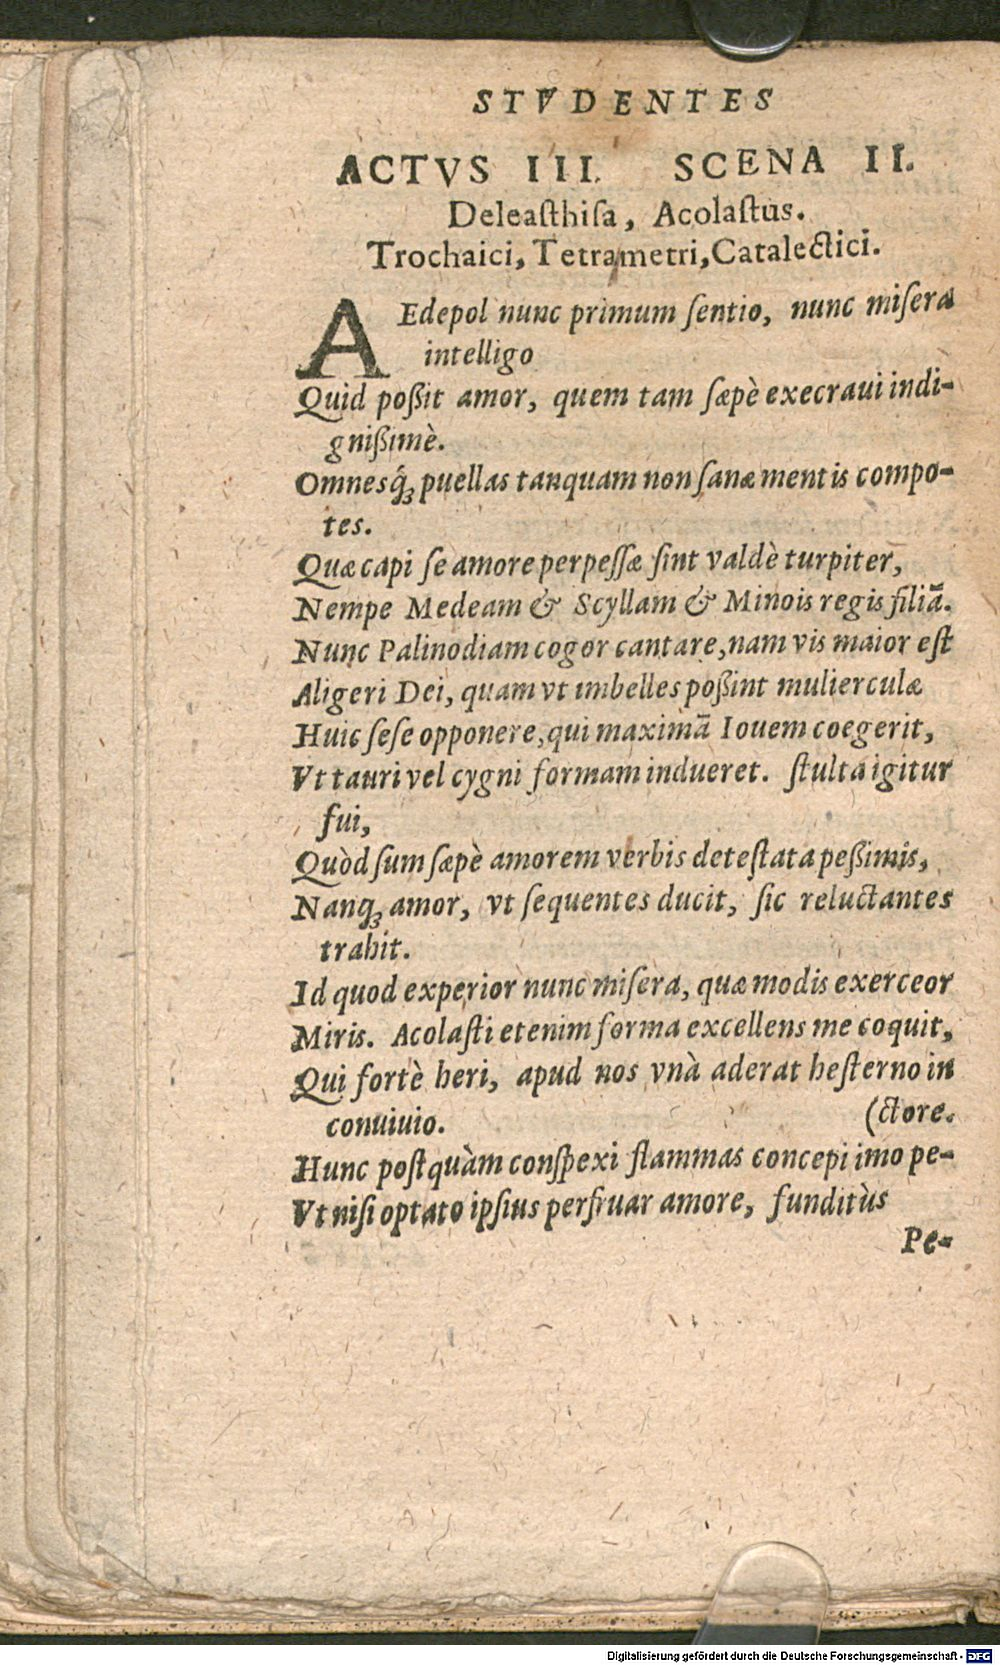 STVDENTES
ACTVS III. SCENA II.
Deleaſthiſa, Acolaſtus.
Trochaici, Tetrametri, Catalectici.
AEdepol nunc primum ſentio, nunc miſera
intelligo
Quid poßit amor, quem tam ſæpè execraui indi-
gnißimè.
Omnesq́ꝫ puellas tanquam non ſanæ mentis compo-
tes.
Quæ capi ſe amore perpeſſæ ſint valdè turpiter,
Nempe Medeam & Scyllam & Minois regis filiā.
Nunc Palinodiam cogor cantare, nam vis maior eſt
Aligeri Dei, quam vt imbelles poßint mulierculæ
Huic ſeſe opponere, qui maximā Iouem coegerit,
Vt tauri vel cygni formam indueret. ſtulta igitur
fui,
Quòd ſum ſæpè amorem verbis deteſtata peßimis,
Nanqꝫ amor, vt ſequentes ducit, ſic reluctantes
trahit.
Id quod experior nunc miſera, quæ modis exerceor
Miris. Acolaſti etenim forma excellens me coquit,
Qui fortè heri, apud nos vnà aderat heſterno in
conuiuio. (ctore.
Hunc poſtquàm conſpexi flammas concepi imo pe-
Vt niſi optato ipſius perfruar amore, funditùs
Pe-
Digitalisierung gefördert durch die Deutsche Forschungsgemeinschaft - DFG